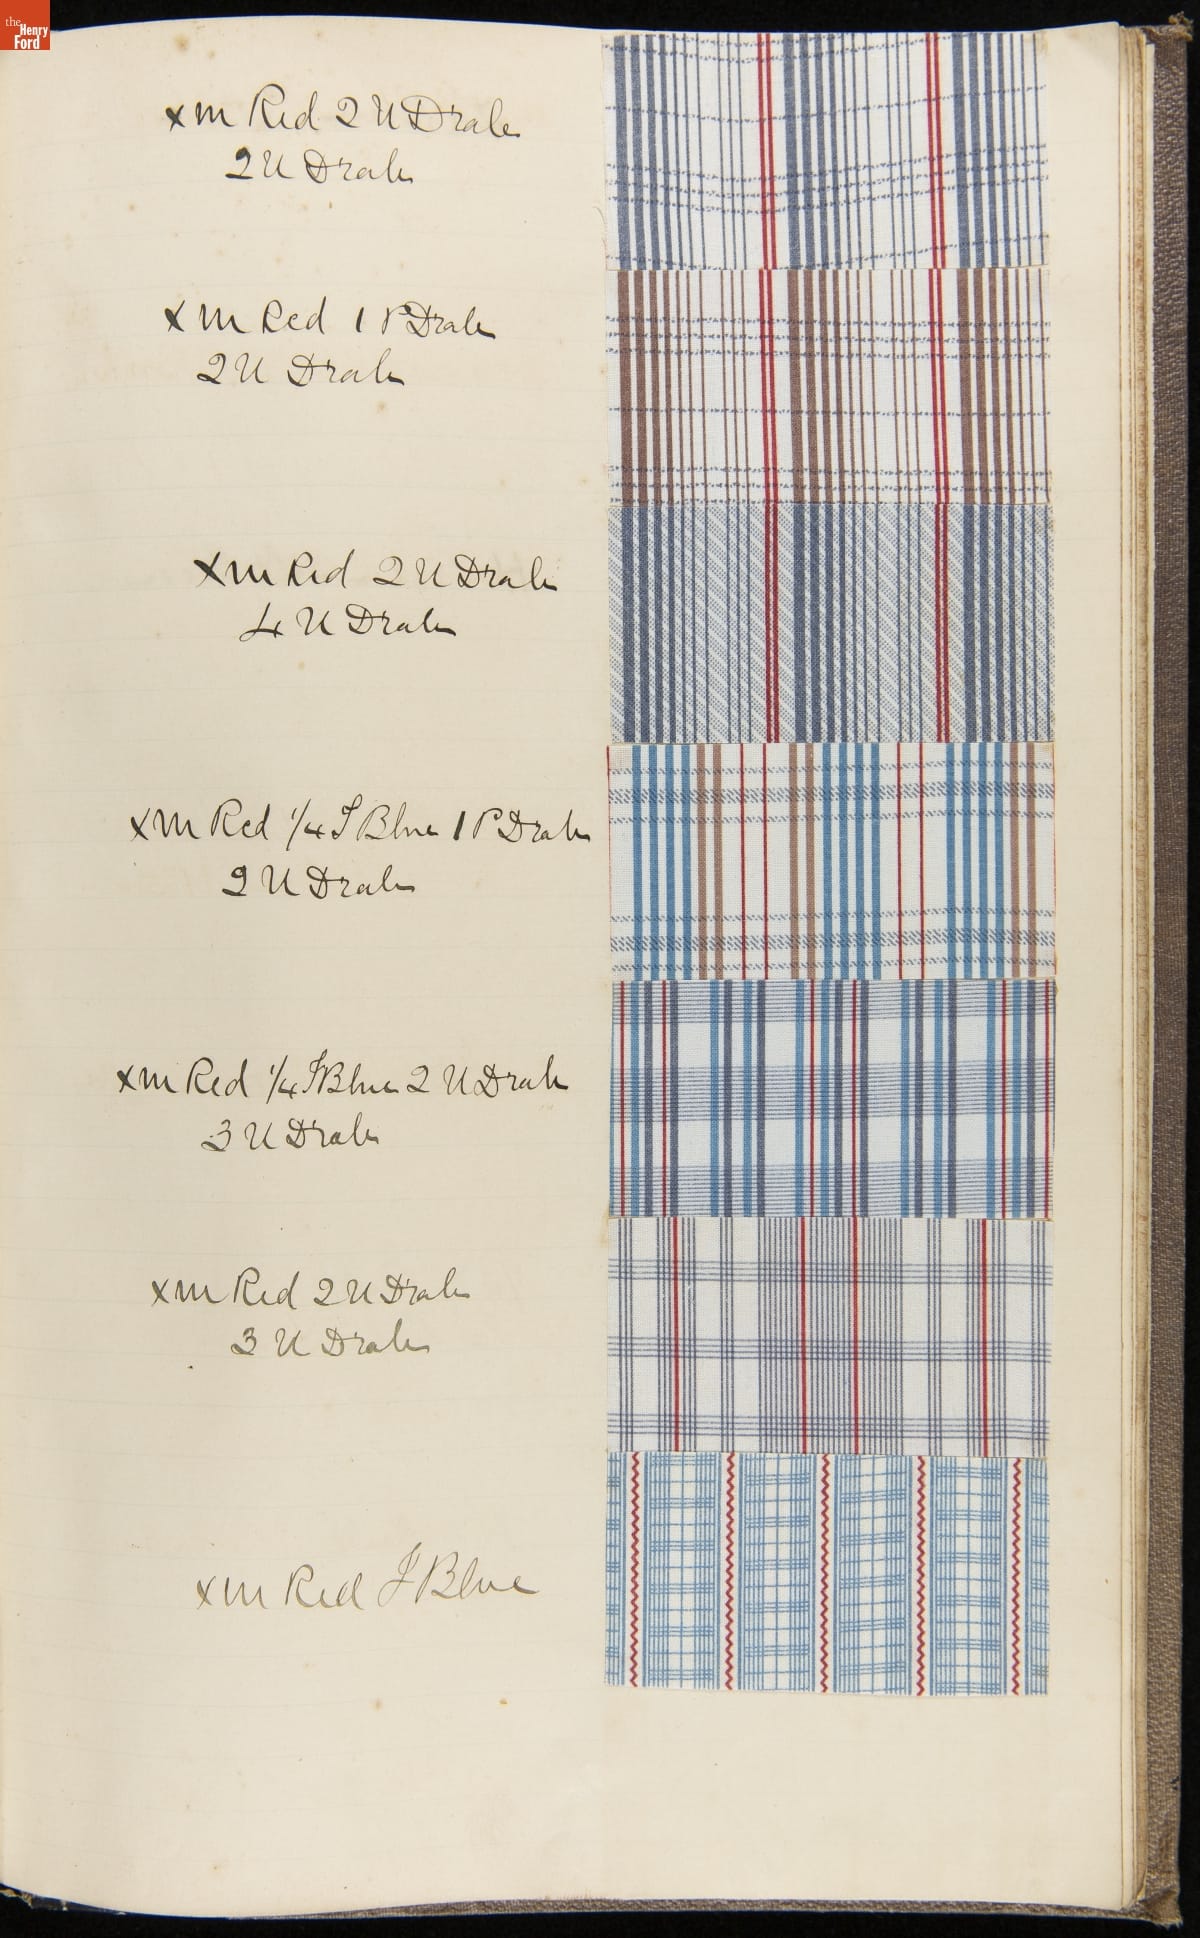 the Henry Ford
xm Red 2 U Drab
2 U Drab
xm Red 1 P Drab
2 U Drab
xm Red 2 U Drab
4 U Drab
xm Red 1/4 J Blue 1 P Drab
2 U Drab
xm Red 1/4 J Blue 2 U Drab
3 U Drab
xm Red 2 U Drab
3 U Drab
xm Red J Blue